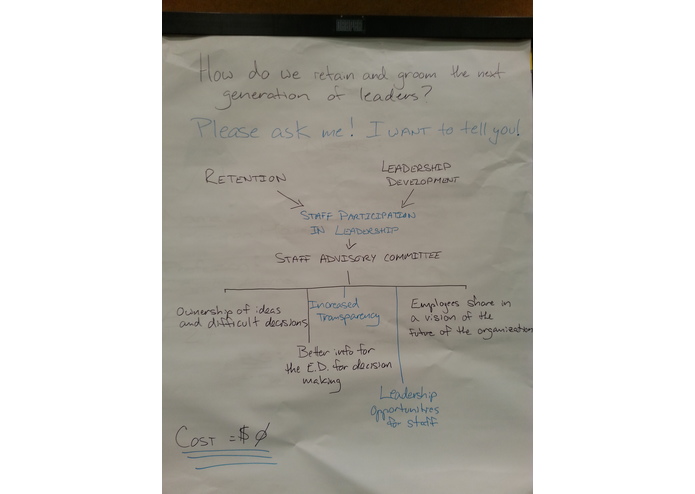 How do we retain and groom the next
generation of leaders?
Please ask me! I WANT to tell you!
RETENTION
LEADERSHIP
DEVELOPMENT
STAFF PARTICIPATION
IN LEADERSHIP
STAFF ADVISORY COMMITTEE
Ownership of ideas
and difficult decisions
Increased
Transparency
Employees share in
a vision of the
future of the organization
Better info for
the E.D. for decision
making
Leadership
opportunities
for staff
COST = $ 0